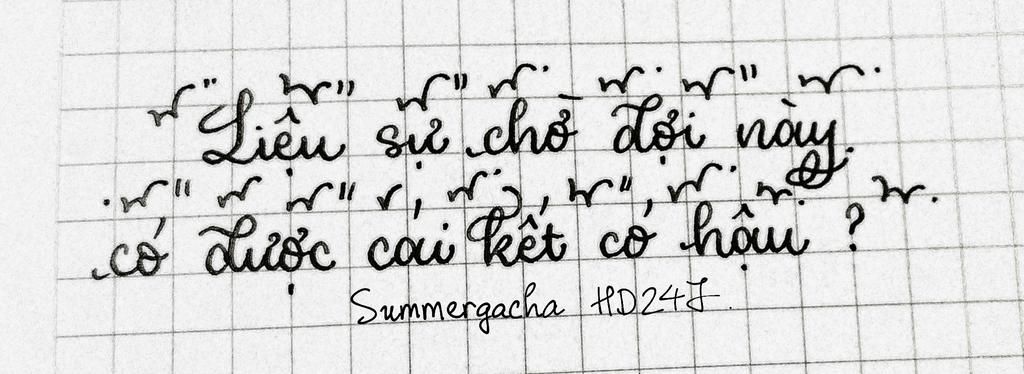 "Liệu sự chờ đợi này
có được cái kết có hậu ?
Summergacha HD24J